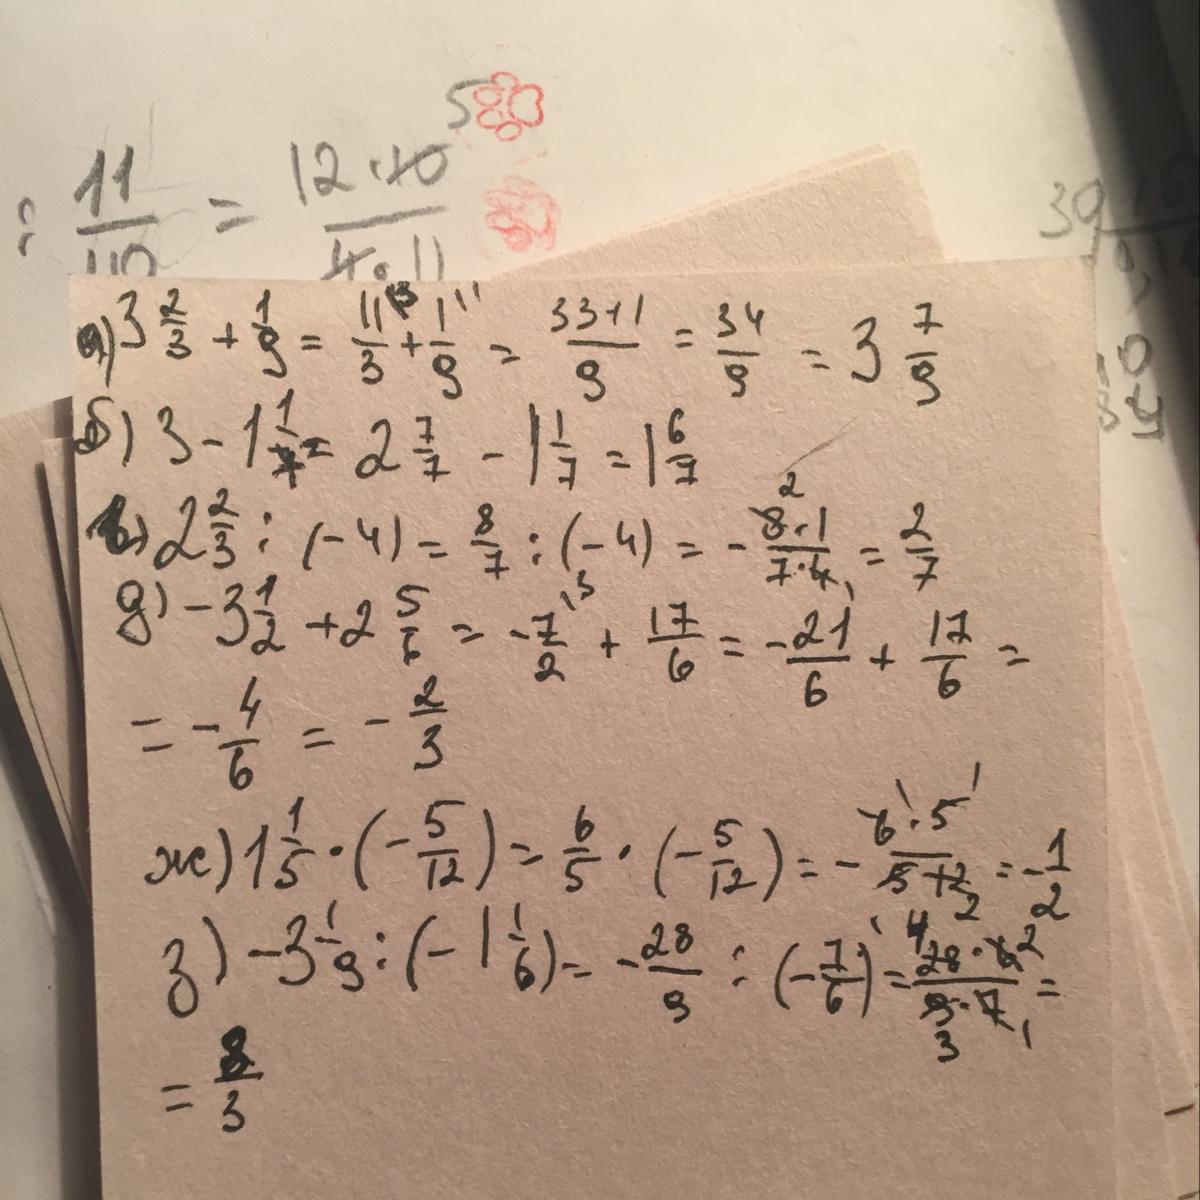 : 11/110 = 12·10/4·11 5
39
а) 3 2/3 + 1/9 = 11/3 + 1/9 = 33+1/9 = 34/9 = 3 7/9
б) 3 - 1 1/7 = 2 7/7 - 1 1/7 = 1 6/7
в) 2 2/3 : (-4) = 8/7 : (-4) = - 8·1/7·4 = 2/7
д) -3 1/2 + 2 5/6 = -7/2 + 17/6 = -21/6 + 17/6 =
= -4/6 = -2/3
ж) 1 1/5 · (-5/12) = 6/5 · (-5/12) = - 6·5/5·12 = -1/2
з) -3 1/9 : (-1 1/6) = -28/9 : (-7/6) = 28·6/9·7 =
= 8/3